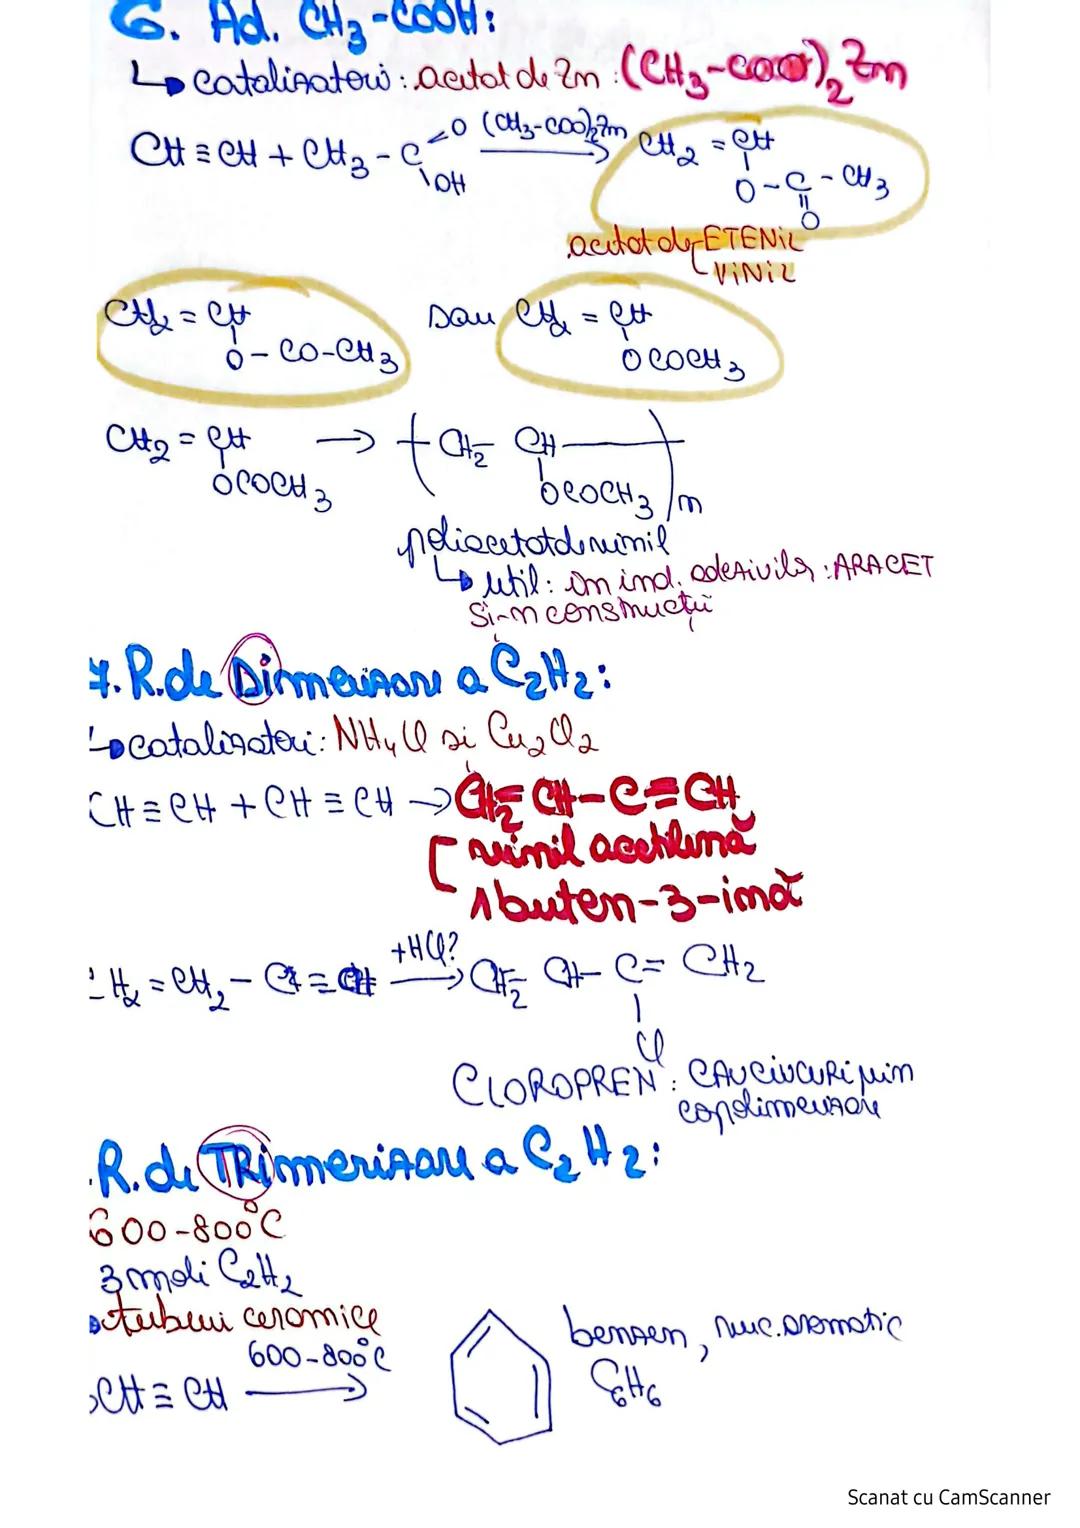 6. Ad. CH3-COOH:
↳ catalizatori: acetat de Zn: (CH3-COO)2Zn
CH ≡ CH + CH3 - C =O \OH (CH3-COO)2Zn → CH2 = CH
O - C - CH3
O
acetat de ETENIL
VINIL
CH2 = CH sau CH2 = CH
O - CO-CH3 OCOCH3
CH2 = CH → ( CH2 - CH )n
OCOCH3 OCOCH3
poliacetat de vinil
↳ util: în ind. adezivilor: ARACET
și-n construcții
7. R. de Dimerizare a C2H2:
↳ catalizatori: NH4Cl și Cu2Cl2
CH ≡ CH + CH ≡ CH → CH2 = CH - C ≡ CH
[ vinil acetilenă
1 buten-3-ină
H2 = CH2 - C ≡ CH +HCl? → CH2 = CH - C = CH2
Cl
CLOROPREN: CAUCIUCURI prin
copolimerizare
R. de TRimerizare a C2H2:
600-800°C
3 moli C2H2
tuburi ceramice
600-800°C benzen, nuc. aromatic
CH ≡ CH → C6H6
Scanat cu CamScanner